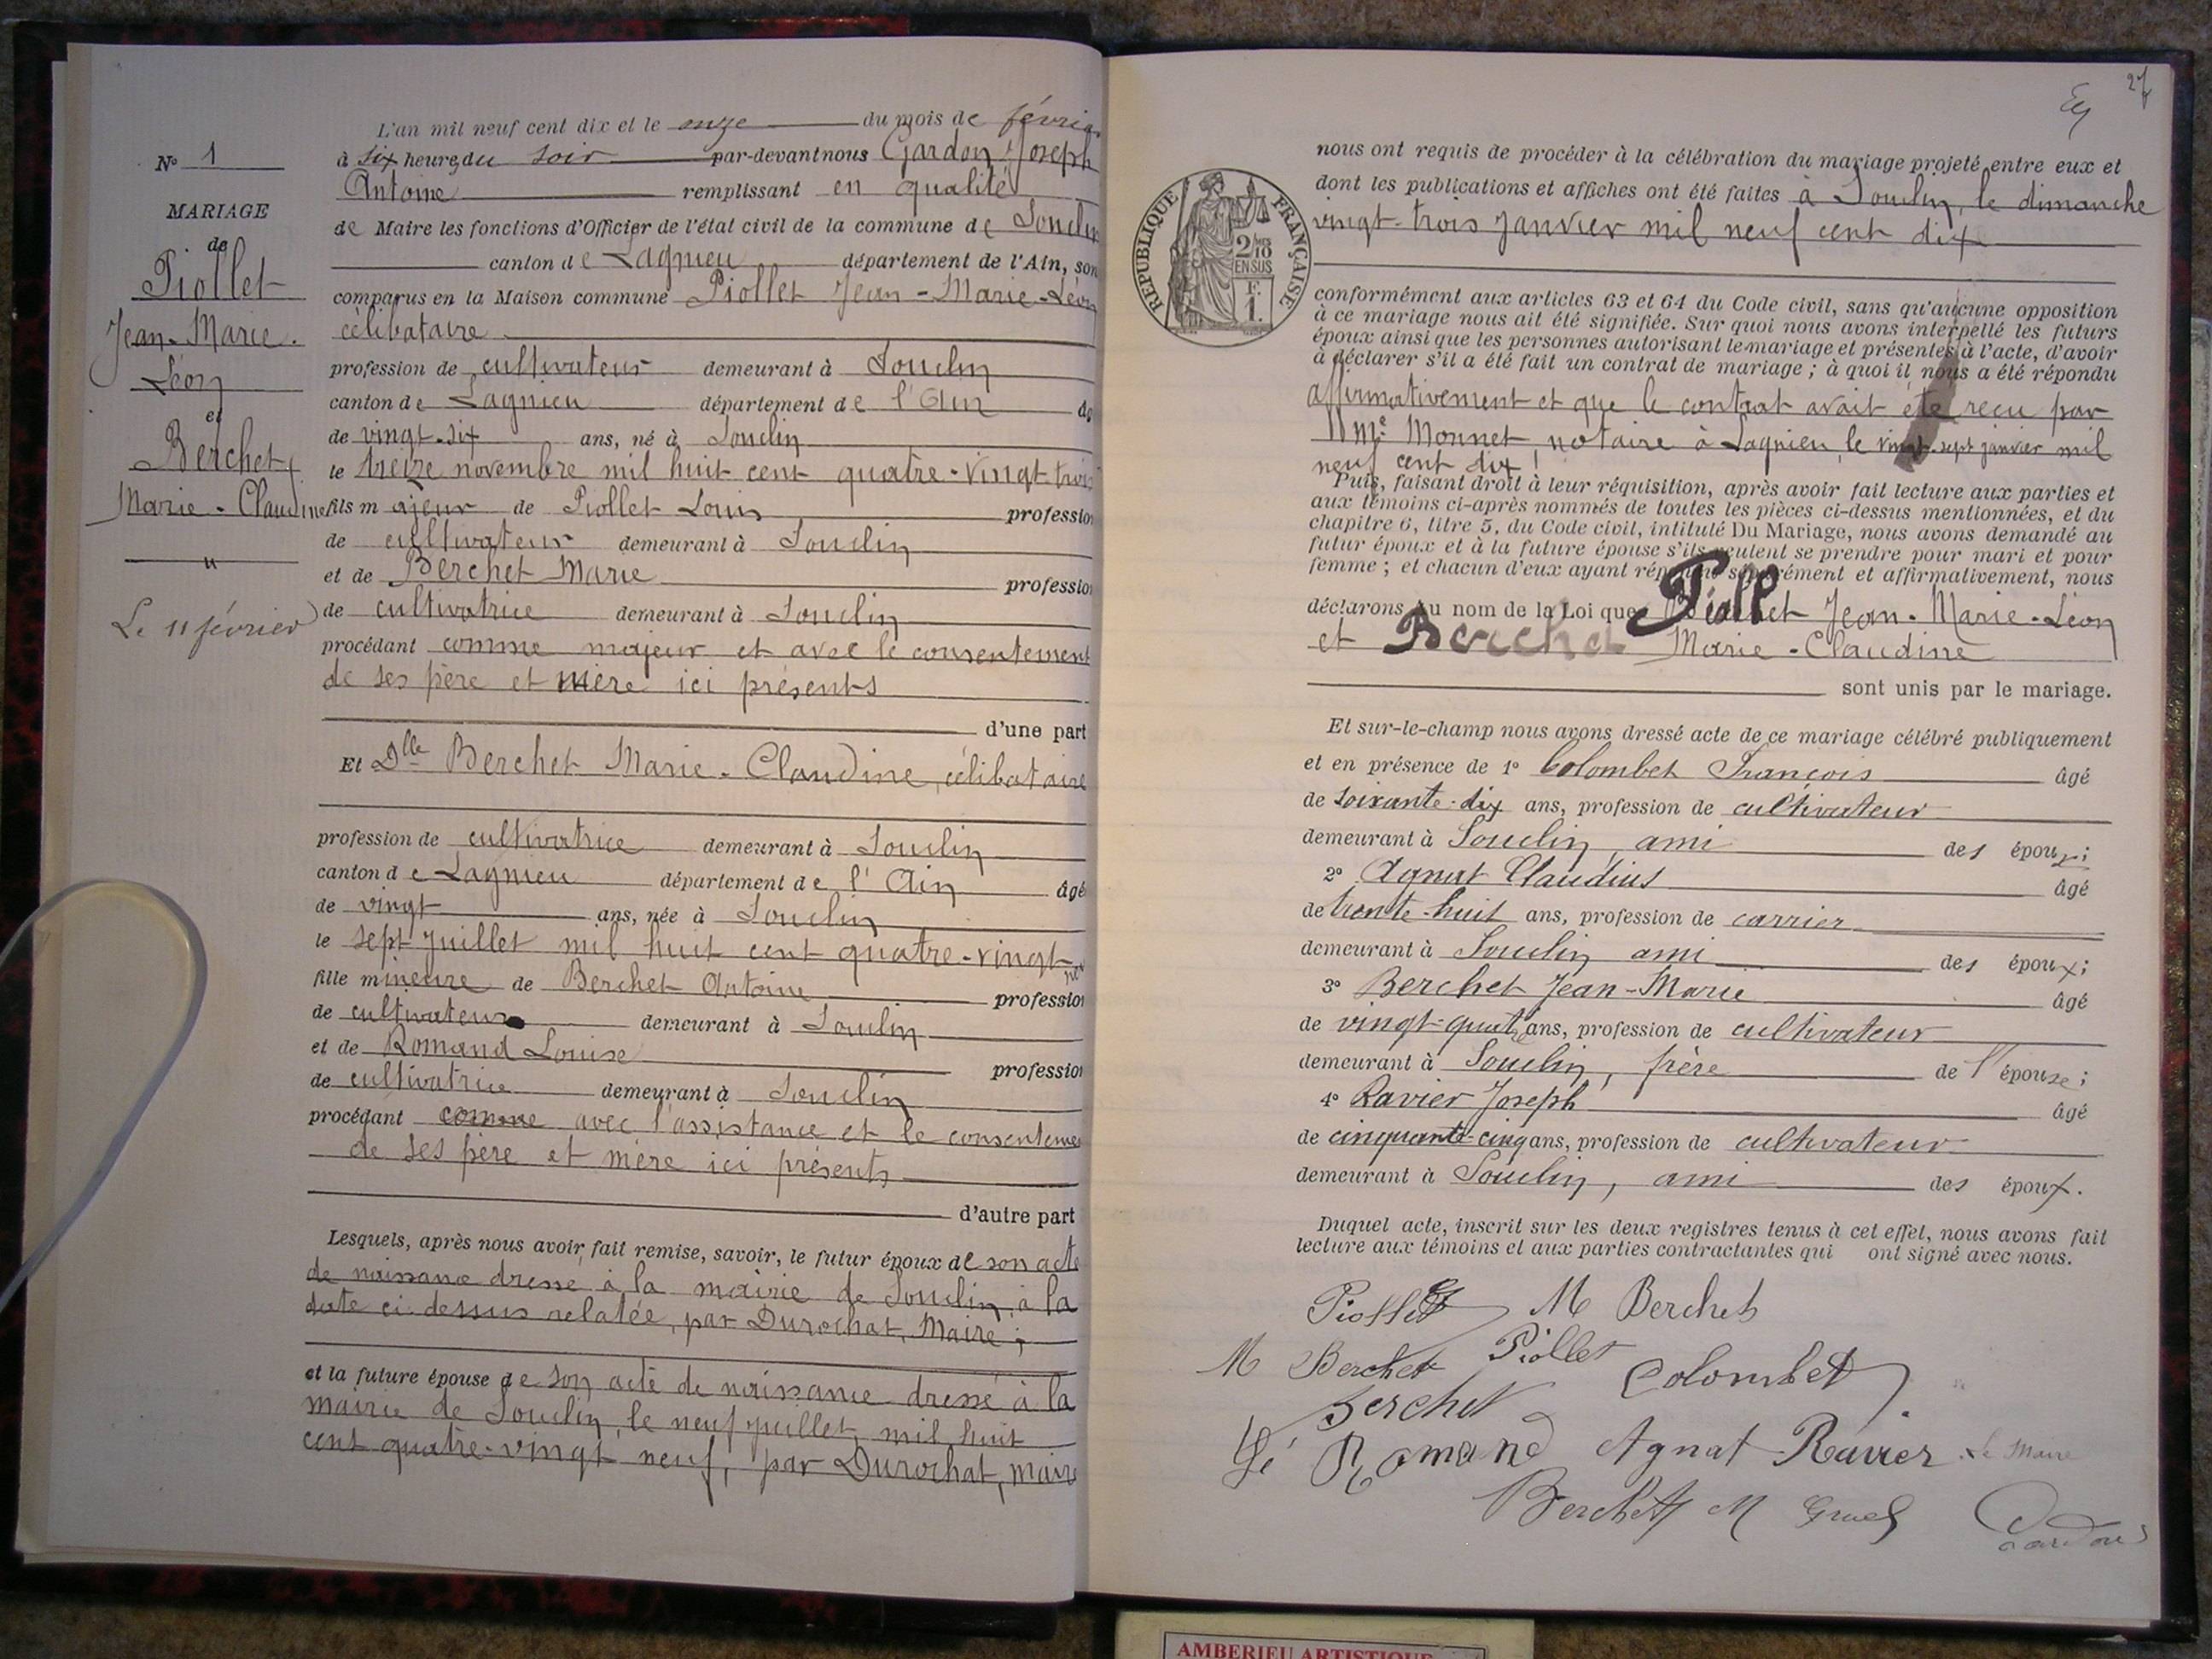 N° 1
MARIAGE
de
Piollet
Jean-Marie.
Léon
et
Berchet
Marie-Claudine
"
Le 11 février
L'an mil neuf cent dix et le onze du mois de février
à six heures du soir par-devant nous Gardon Joseph
Antoine remplissant en qualité
de Maire les fonctions d'Officier de l'état civil de la commune de Souclin
canton de Lagnieu département de l'Ain, son
comparus en la Maison commune Piollet Jean-Marie-Léon
célibataire
profession de cultivateur demeurant à Souclin
canton de Lagnieu département de l'Ain
de vingt-six ans, né à Souclin
le treize novembre mil huit cent quatre-vingt trois
fils majeur de Piollet Louis profession
de cultivateur demeurant à Souclin
et de Berchet Marie profession
de cultivatrice demeurant à Souclin
procédant comme majeur et avec le consentement
de ses père et mère ici présents
d'une part
Et Dlle Berchet Marie-Claudine, célibataire
profession de cultivatrice demeurant à Souclin
canton de Lagnieu département de l'Ain âgé
de vingt ans, née à Souclin
le sept juillet mil huit cent quatre-vingt-neuf
fille mineure de Berchet Antoine profession
de cultivateur demeurant à Souclin
et de Romand Louise profession
de cultivatrice demeurant à Souclin
procédant comme avec l'assistance et le consentemen
de ses père et mère ici présents
d'autre part
Lesquels, après nous avoir fait remise, savoir, le futur époux de son acte
de naissance dressé à la mairie de Souclin, à la
date ci-dessus relatée, par Durochat, Maire ;
et la future épouse de son acte de naissance dressé à la
mairie de Souclin, le neuf juillet mil huit
cent quatre-vingt neuf, par Durochat, maire
27
REPUBLIQUE FRANÇAISE
2/10
EN SUS
F.
1.
nous ont requis de procéder à la célébration du mariage projeté entre eux et
dont les publications et affiches ont été faites à Souclin, le dimanche
vingt-trois janvier mil neuf cent dix
conformément aux articles 63 et 64 du Code civil, sans qu'aucune opposition
à ce mariage nous ait été signifiée. Sur quoi nous avons interpellé les futurs
époux ainsi que les personnes autorisant le mariage et présentes à l'acte, d'avoir
à déclarer s'il a été fait un contrat de mariage ; à quoi il nous a été répondu
affirmativement et que le contrat avait été reçu par
Me Monnet, notaire à Lagnieu, le vingt-sept janvier mil
neuf cent dix
Puis, faisant droit à leur réquisition, après avoir fait lecture aux parties et
aux témoins ci-après nommés de toutes les pièces ci-dessus mentionnées, et du
chapitre 6, titre 5, du Code civil, intitulé Du Mariage, nous avons demandé au
futur époux et à la future épouse s'ils veulent se prendre pour mari et pour
femme ; et chacun d'eux ayant répondu séparément et affirmativement, nous
déclarons au nom de la Loi que Piollet Jean-Marie-Léon
et Berchet Marie-Claudine
sont unis par le mariage.
Et sur-le-champ nous avons dressé acte de ce mariage célébré publiquement
et en présence de 1° Colombet François âgé
de soixante-dix ans, profession de cultivateur
demeurant à Souclin, ami des époux ;
2° Agnat Claudius âgé
de trente-huit ans, profession de carrier
demeurant à Souclin ami des époux ;
3° Berchet Jean-Marie âgé
de vingt-quatre ans, profession de cultivateur
demeurant à Souclin, frère de l'épouse ;
4° Ravier Joseph âgé
de cinquante-cinq ans, profession de cultivateur
demeurant à Souclin, ami des époux.
Duquel acte, inscrit sur les deux registres tenus à cet effet, nous avons fait
lecture aux témoins et aux parties contractantes qui ont signé avec nous.
Piollet M Berchet
M Berchet Piollet Colombet
Berchet
Romand Agnat Ravier Le Maire
Berchet M Gardon
AMBERIEU ARTISTIQUE